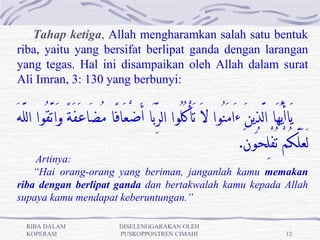 Tahap ketiga, Allah mengharamkan salah satu bentuk
riba, yaitu yang bersifat berlipat ganda dengan larangan
yang tegas. Hal ini disampaikan oleh Allah dalam surat
Ali Imran, 3: 130 yang berbunyi:
يَاأَيُّهَا الَّذِينَ ءَامَنُوا لَا تَأْكُلُوا الرِّبَا أَضْعَافًا مُضَاعَفَةً وَاتَّقُوا اللَّهَ
لَعَلَّكُمْ تُفْلِحُونَ.
Artinya:
“Hai orang-orang yang beriman, janganlah kamu memakan
riba dengan berlipat ganda dan bertakwalah kamu kepada Allah
supaya kamu mendapat keberuntungan.”
RIBA DALAM
KOPERASI
DISELENGGARAKAN OLEH
PUSKOPPONTREN CIMAHI
12